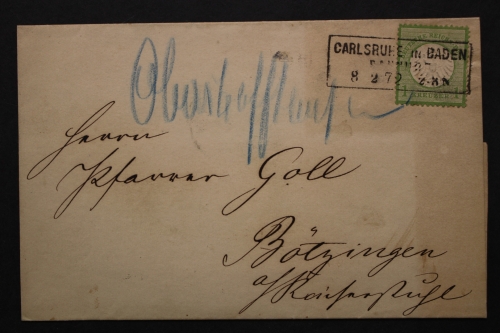 CARLSRUHE IN BADEN
BAHNHOF
8 2 72 2-8 N
Herrn
Pfarrer Goll
Bötzingen
a/Kaiserstuhl